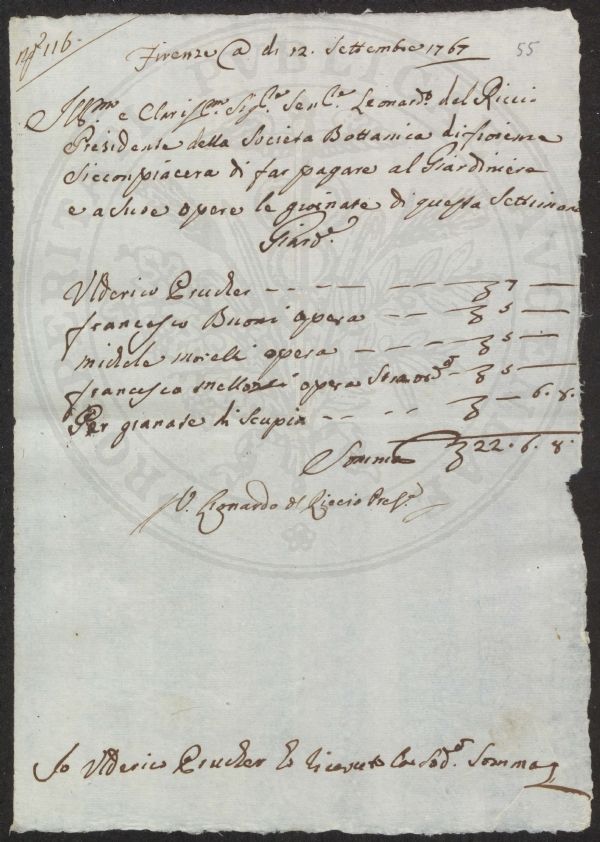 nº 116.
55
Firenze @ dì 12. Settembre 1767
Ill.mo e Clariss.mo Sig.re Sen.re Leonardo del Riccio
Presidente della Società Bottanica di fiorenza
si conpiacera di far pagare al Giardiniere
e a sue opere le giornate di questa Settimana
Giard.e
Vlderico Prucker -- -- -- -- 7 —
francesco Buoni opera -- -- -- 5 —
michele morelli opera -- -- -- 5 —
francesco mellozzi opera Straord.o - 5 —
Per granate di Scupia -- -- -- — 6. 8.
Somma 22. 6. 8.
V. Lionardo del Riccio Pres.e
Io Vlderico Prucker ho riceuuto la Sod.a Somma
PROSPERITATI PVBLICAE AVGENDAE